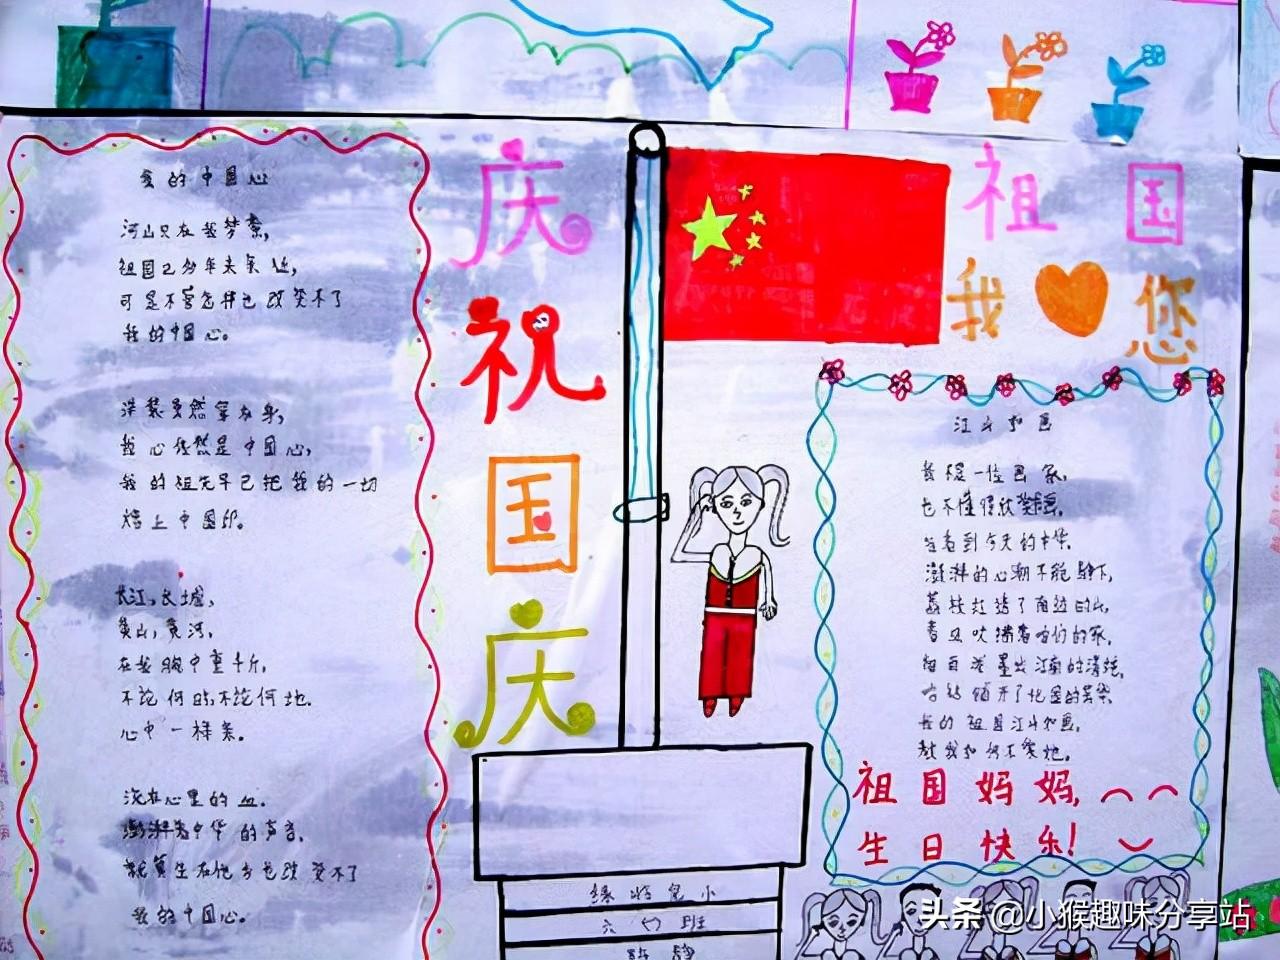 我的中国心
河山只在我梦萦,
祖国已多年未亲近,
可是不管怎样也改变不了
我的中国心。
洋装虽然穿在身,
我心依然是中国心,
我的祖先早已把我的一切
烙上中国印。
长江,长城,
黄山,黄河,
在我胸中重千斤,
不论何时,不论何地.
心中一样亲。
流在心里的血.
澎湃着中华的声音,
就算生在他乡也改变不了
我的中国心。
庆祝国庆
祖国
我 您
江山如画
我不是一位画家,
也不懂得欣赏画,
当看到今天的中华,
澎湃的心潮不能静下,
荔枝红透了南边的山,
春风吹拂着咱们的家,
江南的清
开了北国的
我的祖国江山如画,
教我如何不爱她。
祖国妈妈,
生日快乐!
小
六 班
头条 @小猴趣味分享站